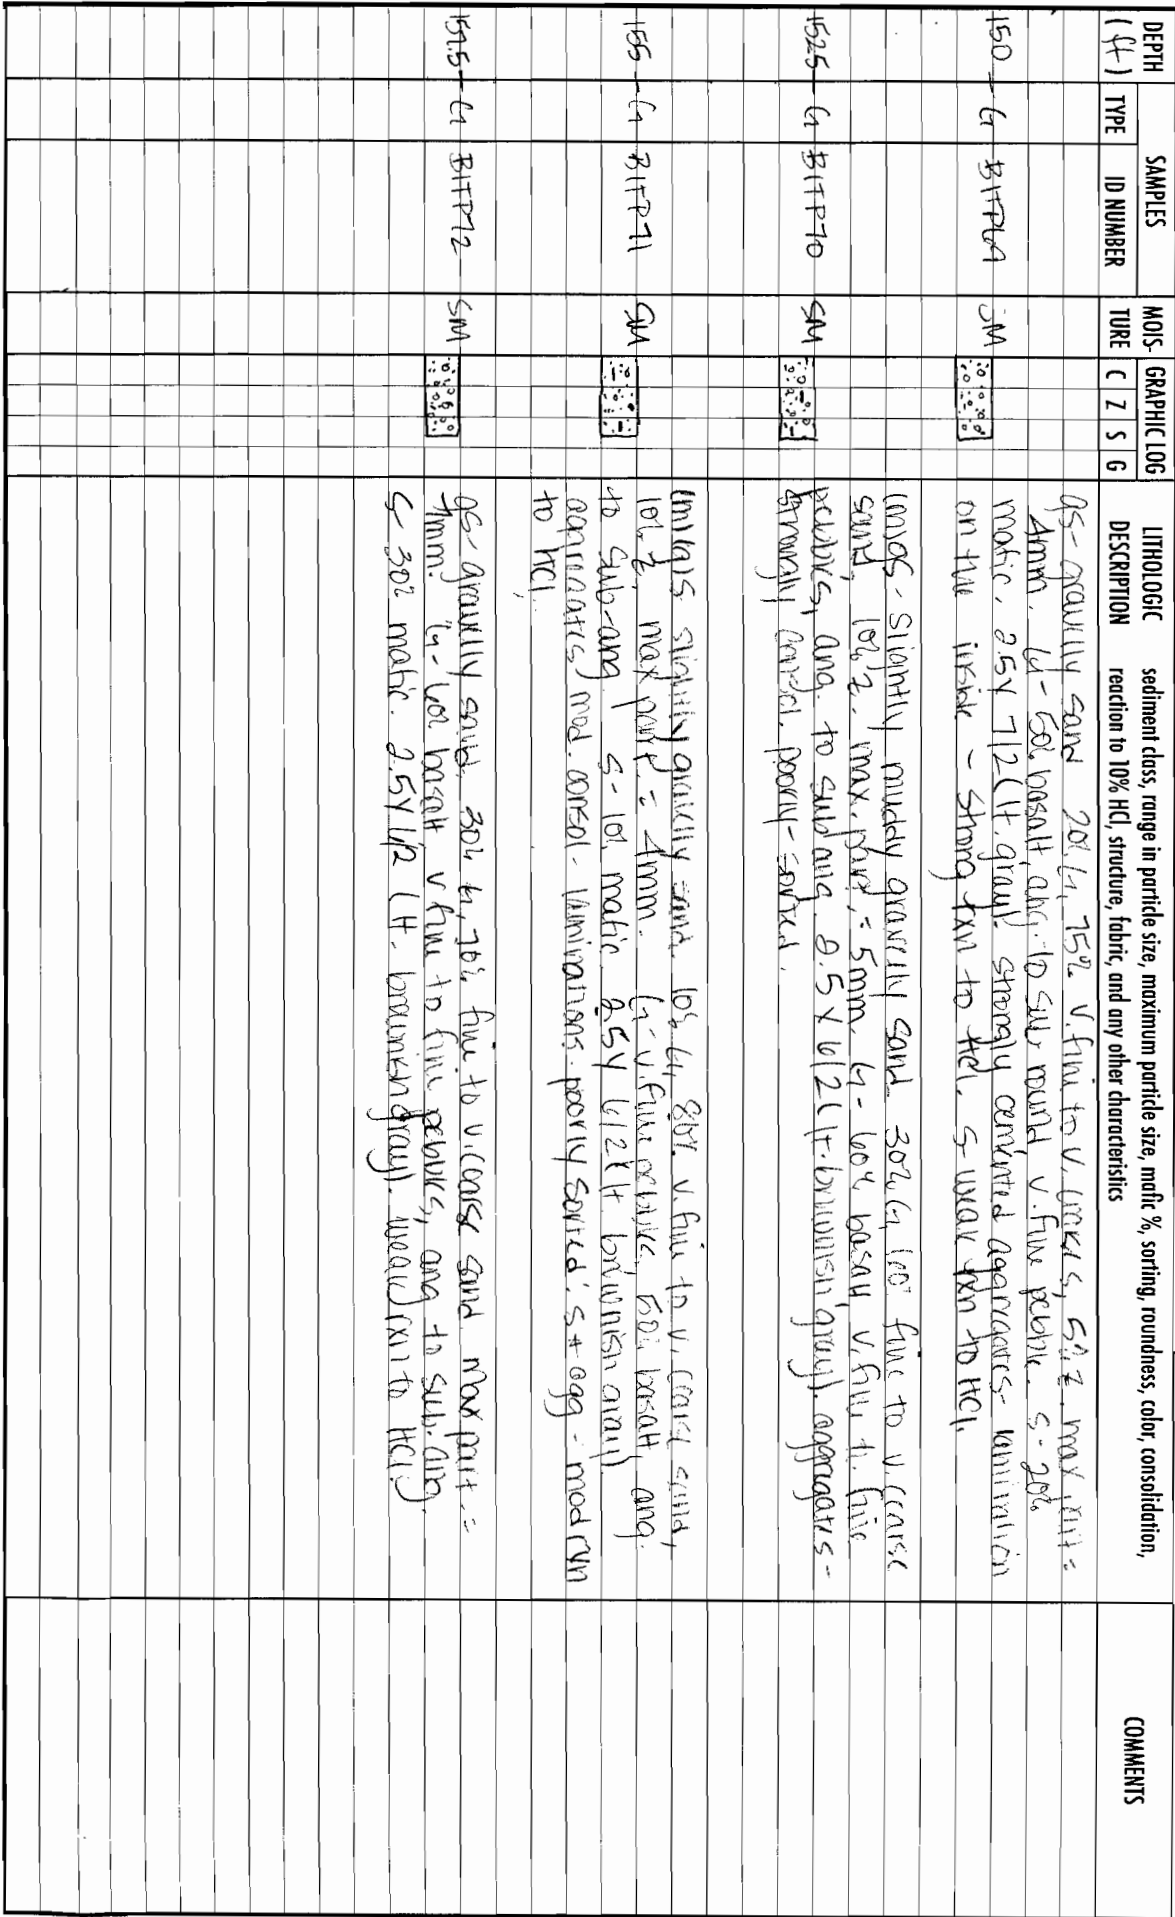 DEPTH (ft)
SAMPLES
TYPE ID NUMBER
MOIS-TURE
GRAPHIC LOG
C Z S G
LITHOLOGIC DESCRIPTION
sediment class, range in particle size, maximum particle size, mafic %, sorting, roundness, color, consolidation,
reaction to 10% HCl, structure, fabric, and any other characteristics
COMMENTS
150 G SM
gs - gravelly sand 20% G, 75% v. fine to v. coarse s, 5% z. max part =
4mm. G - 50% basalt, ang. to sub round v. fine pebble. s - 20%
mafic, 2.5Y 7/2 (lt. gray). strongly cemented aggregates - lamination
on the inside - strong rxn to HCl. S - weak rxn to HCl.
152.5 G B1TP70 SM
(m)gs - slightly muddy gravelly sand 30% G, fine to v. coarse
sand, 10% z, max. part. = 5mm. G - 60% basalt, v. fine to fine
pebbles, ang. to sub ang. 2.5Y 6/2 (lt. brownish gray). aggregates -
strongly consol. poorly-sorted.
155 G B1TP71 SM
slightly gravelly sand. 10% G, 80% v. fine to v. coarse sand,
10% z, max part. = 4mm. G - v. fine pebble, 50% basalt, ang.
to sub-ang. S - 10% mafic. 2.5Y 6/2 (lt. brownish gray).
aggregates mod. consol - laminations. poorly sorted. S + agg - mod rxn
to HCl.
157.5 G B1TP72 SM
gs - gravelly sand. 30% G, 70% fine to v. coarse sand. max part. =
4mm. G - 60% basalt v fine to fine pebbles, ang to sub-ang.
S - 30% mafic. 2.5Y 6/2 (lt. brownish gray). weak rxn to HCl.